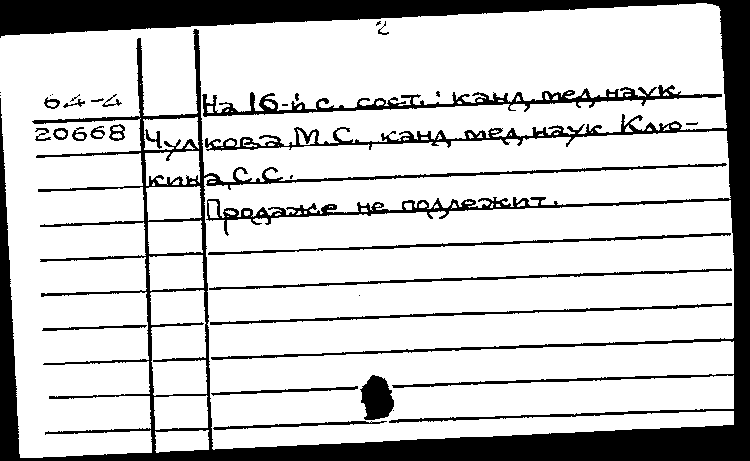 2
64-4
20668
На 16-й с. сост.: канд. мед. наук
Чулкова, М.С., канд. мед. наук Клю-
кина, С.С.
Продаже не подлежит.